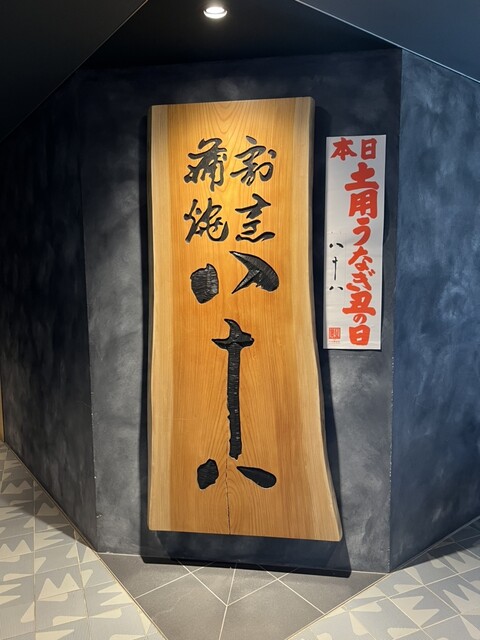 割烹
蒲焼
八十八
本日
土用うなぎ丑の日
八十八